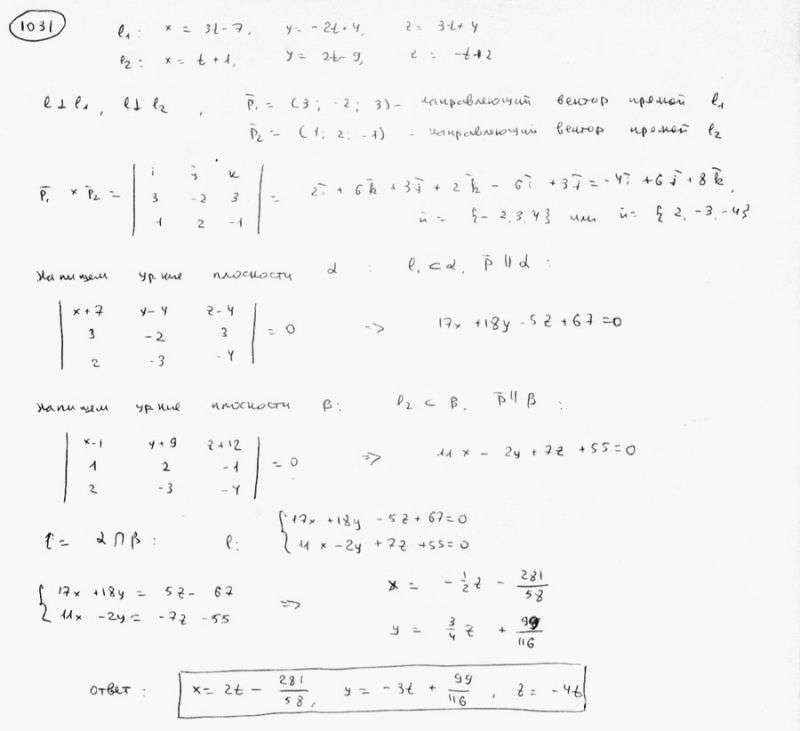 1031
l₁: x = 3t-7, y = -2t+4, z = 3t+4
l₂: x = t+1, y = 2t-9, z = -t+2
l⊥l₁, l⊥l₂, p̄₁ = (3; -2; 3) - направляющий вектор прямой l₁
p̄₂ = (1; 2; -1) - направляющий вектор прямой l₂
p̄₁ × p̄₂ = | i j k | 3 -2 3 | 1 2 -1 | = 2ī + 6k̄ + 3j̄ + 2k̄ - 6ī + 3j̄ = -4ī + 6j̄ + 8k̄,
n̄ = {-2,3,4} или n̄ = {2,-3,-4}
Напишем ур-ние плоскости α : l₁ ⊂ α, p̄ ∥ α :
| x+7 y-4 z-4 | 3 -2 3 | 2 -3 -4 | = 0 => 17x + 18y - 5z + 67 = 0
Напишем ур-ние плоскости β: l₂ ⊂ β, p̄ ∥ β :
| x-1 y+9 z+12 | 1 2 -1 | 2 -3 -4 | = 0 => 11x - 2y + 7z + 55 = 0
l = α ∩ β : l: { 17x + 18y - 5z + 67 = 0
11x - 2y + 7z + 55 = 0
{ 17x + 18y = 5z - 67
11x - 2y = -7z - 55 => x = -1/2 z - 281/58
y = 3/4 z + 99/116
ответ: x = 2t - 281/58, y = -3t + 99/116, z = -4t